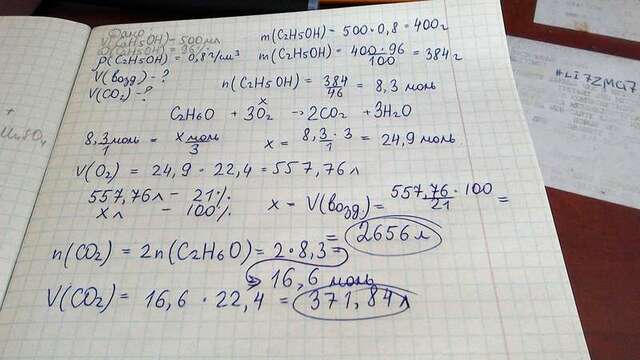 Дано
V(C2H5OH) = 500 мл
ω(C2H5OH) = 96%
ρ(C2H5OH) = 0,8 г/см³
V(возд.) - ?
V(CO2) - ?
m(C2H5OH) = 500 · 0,8 = 400г
m(C2H5OH) = 400·96/100 = 384 г
n(C2H5OH) = 384/46 = 8,3 моль
x
C2H6O + 3O2 → 2CO2 + 3H2O
8,3 моль/1 = x моль/3 x = 8,3 · 3/1 = 24,9 моль
V(O2) = 24,9 · 22,4 = 557,76 л
557,76 л - 21%
x л - 100%
x - V(возд.) = 557,76 · 100/21 =
= 2656 л
n(CO2) = 2n(C2H6O) = 2·8,3 =
= 16,6 моль
V(CO2) = 16,6 · 22,4 = 371,84 л
#LI7ZMQ7